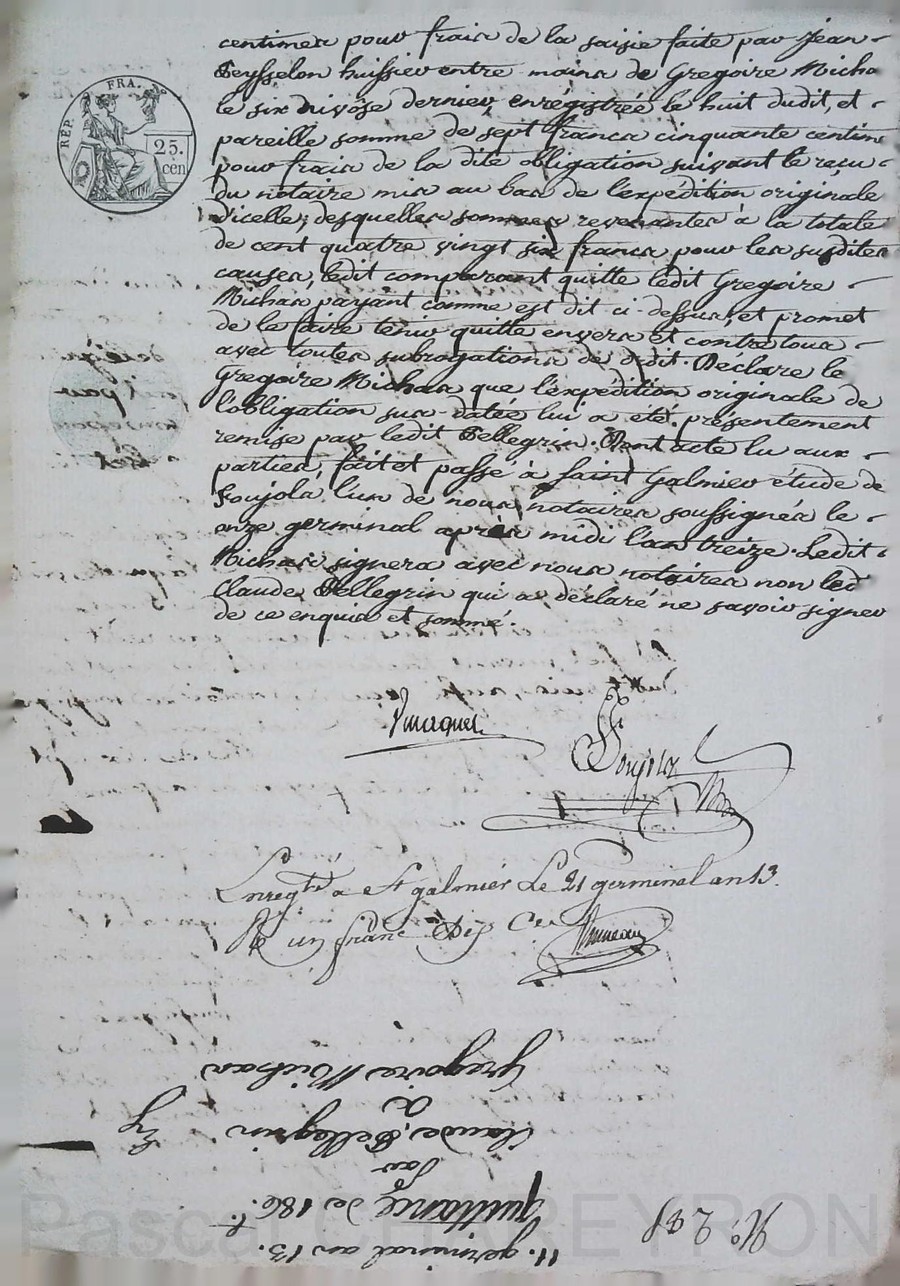 REP. FRA.
25.
cen
centimes pour frais de la saisie faite par Jéan
Peysselon huissier entre mains de Gregoire Micha
le six nivôse dernier, enrégistrée le huit dudit, et
pareille somme de sept francs cinquante centim
pour frais de la dite obligation suivant le reçu
du notaire mis au bas de l'expédition originale
d'icelle; desquelles sommes revenantes à la totale
de cent quatre vingt six francs pour les susdites
causes, ledit comparant quitte ledit Gregoire
Michas payant comme est dit ci-dessus, et promet
de le faire tenir quitte envers et contre tous
avec toutes subrogations de droit. Déclare le
Gregoire Michas que l'expédition originale de
l'obligation sus-datée lui a été présentement
remise par ledit Pellegrin. Dont acte lu aux
parties, fait et passé à Saint Galmier étude de
Soujola, l'un de nous notaires soussignés le
onze germinal après midi l'an treize. Ledit
Michas signera avec nous notaires non led
Claude Pellegrin qui a déclaré ne savoir signer
de ce enquis et sommé.
Soujola
Enregtré a St galmier Le 21 germinal an 13.
Rç un franc Dix Ces
N.° 298
11. germinal an 13.
quittance de 186 f.
par
Claude Pellegrin
à
Gregoire Michas
Pascal CHAREYRON